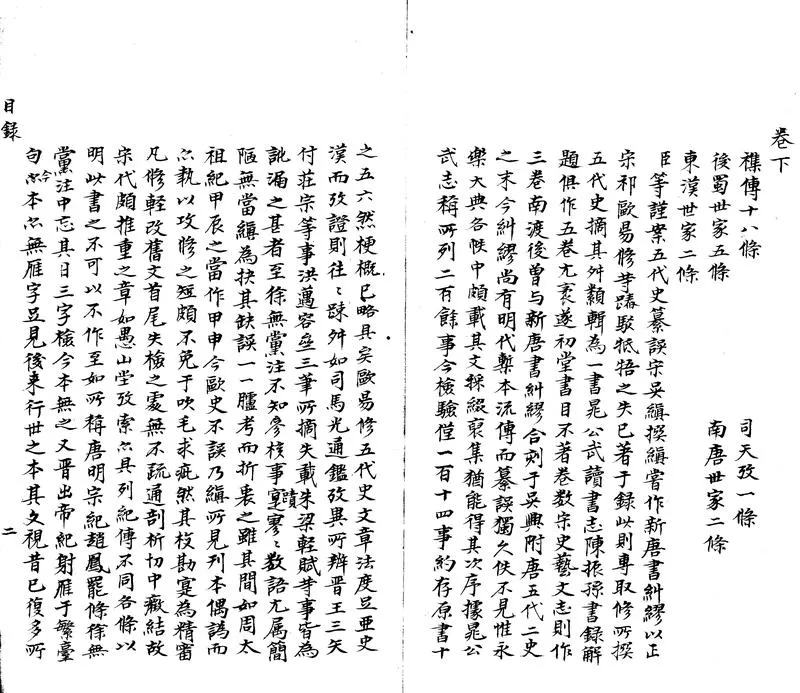 卷下
襍傳十八條　司天攷一條
後蜀世家五條　南唐世家二條
東漢世家二條
臣等謹案五代史纂誤宋吳縝撰縝嘗作新唐書糾繆以正
宋祁歐易修等踳駁抵牾之失已著于錄以則專取修所撰
五代史摘其舛纇輯為一書晁公武讀書志陳振孫書錄解
題俱作五卷尤袤遂初堂書目不著卷數宋史藝文志則作
三卷南渡後曾与新唐書糾繆合刻于吳興附唐五代二史
之末今糾繆尚有明代槧本流傳而纂誤獨久佚不見惟永
樂大典各帙中頗載其文採綴裒集猶能得其次序據晁公
武志稱所列二百餘事今檢驗僅一百十四事約存原書十
之五六然梗概已略具矣歐易修五代史文章法度足亞史
漢而攷證則往〻踈舛如司馬光通鑑攷異所辨晋王三矢
付莊宗等事洪邁容齋三筆所摘失載朱梁輕賦等事皆為
訛漏之甚者至徐無黨注不知參核事蹟寥〻數語尤属簡
陋無當縝為抉其缺誤一一臚考而折衷之雖其間如周太
祖紀甲辰之當作甲申今歐史不誤乃縝所見刊本偶譌而
亦執以攻修之短頗不免于吹毛求疵然其校勘寔為精審
凡修輕改舊文首尾失檢之處無不疏通剖析切中癥結故
宋代頗推重之章如愚山堂攷索亦具列紀傳不同各條以
明此書之不可以不作至如所稱唐明宗紀趙鳳罷條徐無
黨注中忘其日三字檢今本無之又晋出帝紀射雁于繁臺
句今本亦無雁字足見後来行世之本其文視昔已復多所
目錄
二